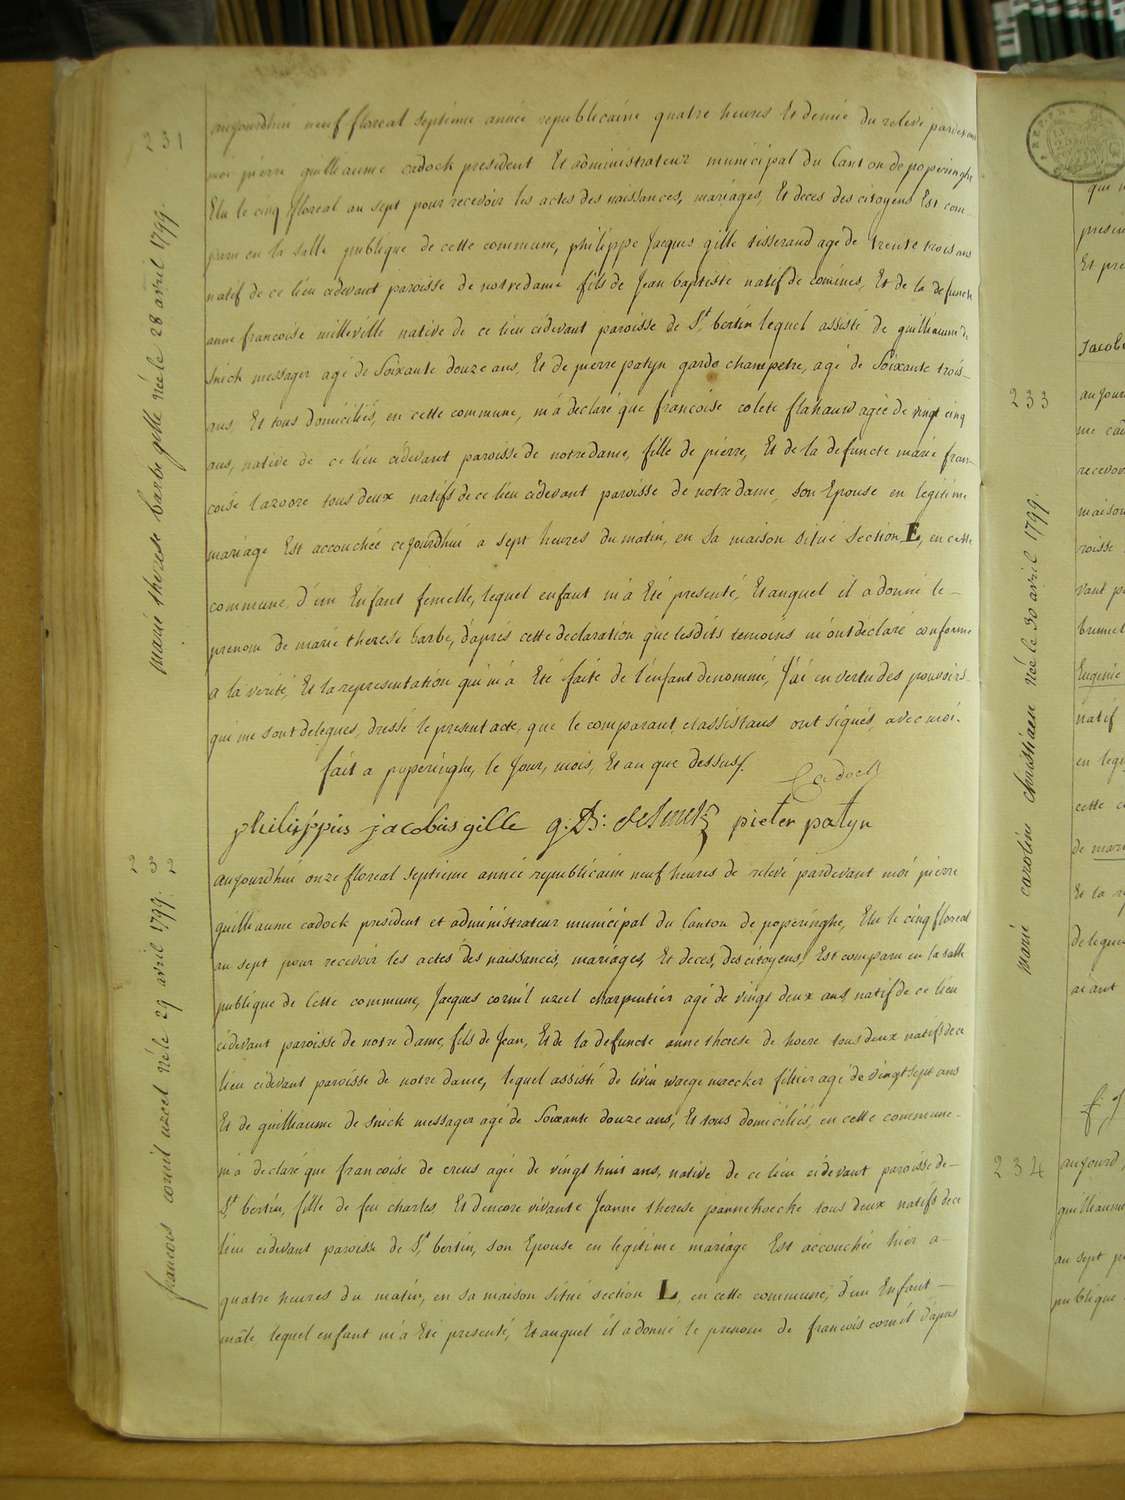 231
marie therese barbe gille née le 28 avril 1799.
aujourdhui neuf floreal septieme année republicaine quatre heures Et demie du relevé pardevant
moi pierre guilleaume cadock president Et administrateur municipal du Canton de poperinghe
Elu le cinq floreal an sept pour recevoir les actes des naissances, mariages, Et deces des citoyens Est com-
paru en la salle publique de cette commune, philippe Jacques gille tisserand agé de trente trois ans
natif de ce lieu cidevant paroisse de notredame fils de Jean baptiste natif de comines, Et de la defuncte
anne francoise milleville native de ce lieu cidevant paroisse de St bertin lequel assisté de guilleaume de
snick messager agé de Soixante douze ans, Et de pierre patyn garde champetre, agé de Soixante trois-
ans, Et tous domiciliés, en cette commune, m'a declaré que francoise colete flahauw agée de vingt cinq
ans, native de ce lieu cidevant paroisse de notredame, fille de pierre, Et de la defuncte marie fran-
coise tous deux natifs de ce lieu cidevant paroisse de notre dame, son Epouse en legitime
mariage Est accouchée cejourdhui a sept heures du matin, en sa maison situé section E, en cette
commune, d'un Enfant femelle, lequel enfant m'a Eté presenté, Et auquel il a donné le-
prenom de marie therese barbe, d'aprés cette declaration que lesdits temoins m'ont declaré conforme
a la verité, Et la representation qui m'a Eté faite de l'enfant denommé, J'ai en vertu des pouvoirs-
qui me sont delegués, dressé le present acte, que le comparant, et assistans ont signés, avec moi.
fait a poperinghe, le Jour, mois, Et an que dessus.
Cadock
philippus jacobus gille g: D: desnick pieter patyn
232
francois cornil uzeel né le 29 avril 1799.
aujourdhui onze floreal septieme année republicaine neuf heures de relevé pardevant moi pierre
guilleaume cadock president et administrateur municipal du Canton de poperinghe, Elu le cinq floreal
an sept pour recevoir les actes des naissances, mariages, Et deces, des citoyens, Est comparu en la salle
publique de Cette commune, Jacques cornil uzeel charpentier agé de vingt deux ans natif de ce lieu
cidevant paroisse de notre dame, fils de Jean, Et de la defuncte anne therese de hoere tous deux natifs de ce
lieu cidevant paroisse de notre dame, lequel assisté de livin waegemaecker filtier agé de vingt sept ans
Et de guilleaume de snick messager agé de Soixante douze ans, Et tous domiciliés, en cette commune-
m'a declaré que francoise de creus agée de vingt huit ans, native de ce lieu cidevant paroisse de-
St bertin, fille de feu charles Et d'encore vivante Jeanne therese pannekoecke tous deux natifs de ce
lieu cidevant paroisse de St bertin, son Epouse en legitime mariage Est accouchée hier a-
quatre heures du matin, en sa maison situé section L, en cette commune, d'un Enfant-
mâle, lequel enfant m'a Eté presenté, Et auquel il a donné le prenom de francois cornil d'aprés
233
marie caroline christiaen née le 30 avril 1799.
qui
presen
Et pre
Jacob
aujour
me cad
recevoi
maison
roisse
vant pa
Eugenie
natif
en legi
cette c
de mari
Et la r
delegué
aiant
234
aujourd
guilleaume
au sept p
publique